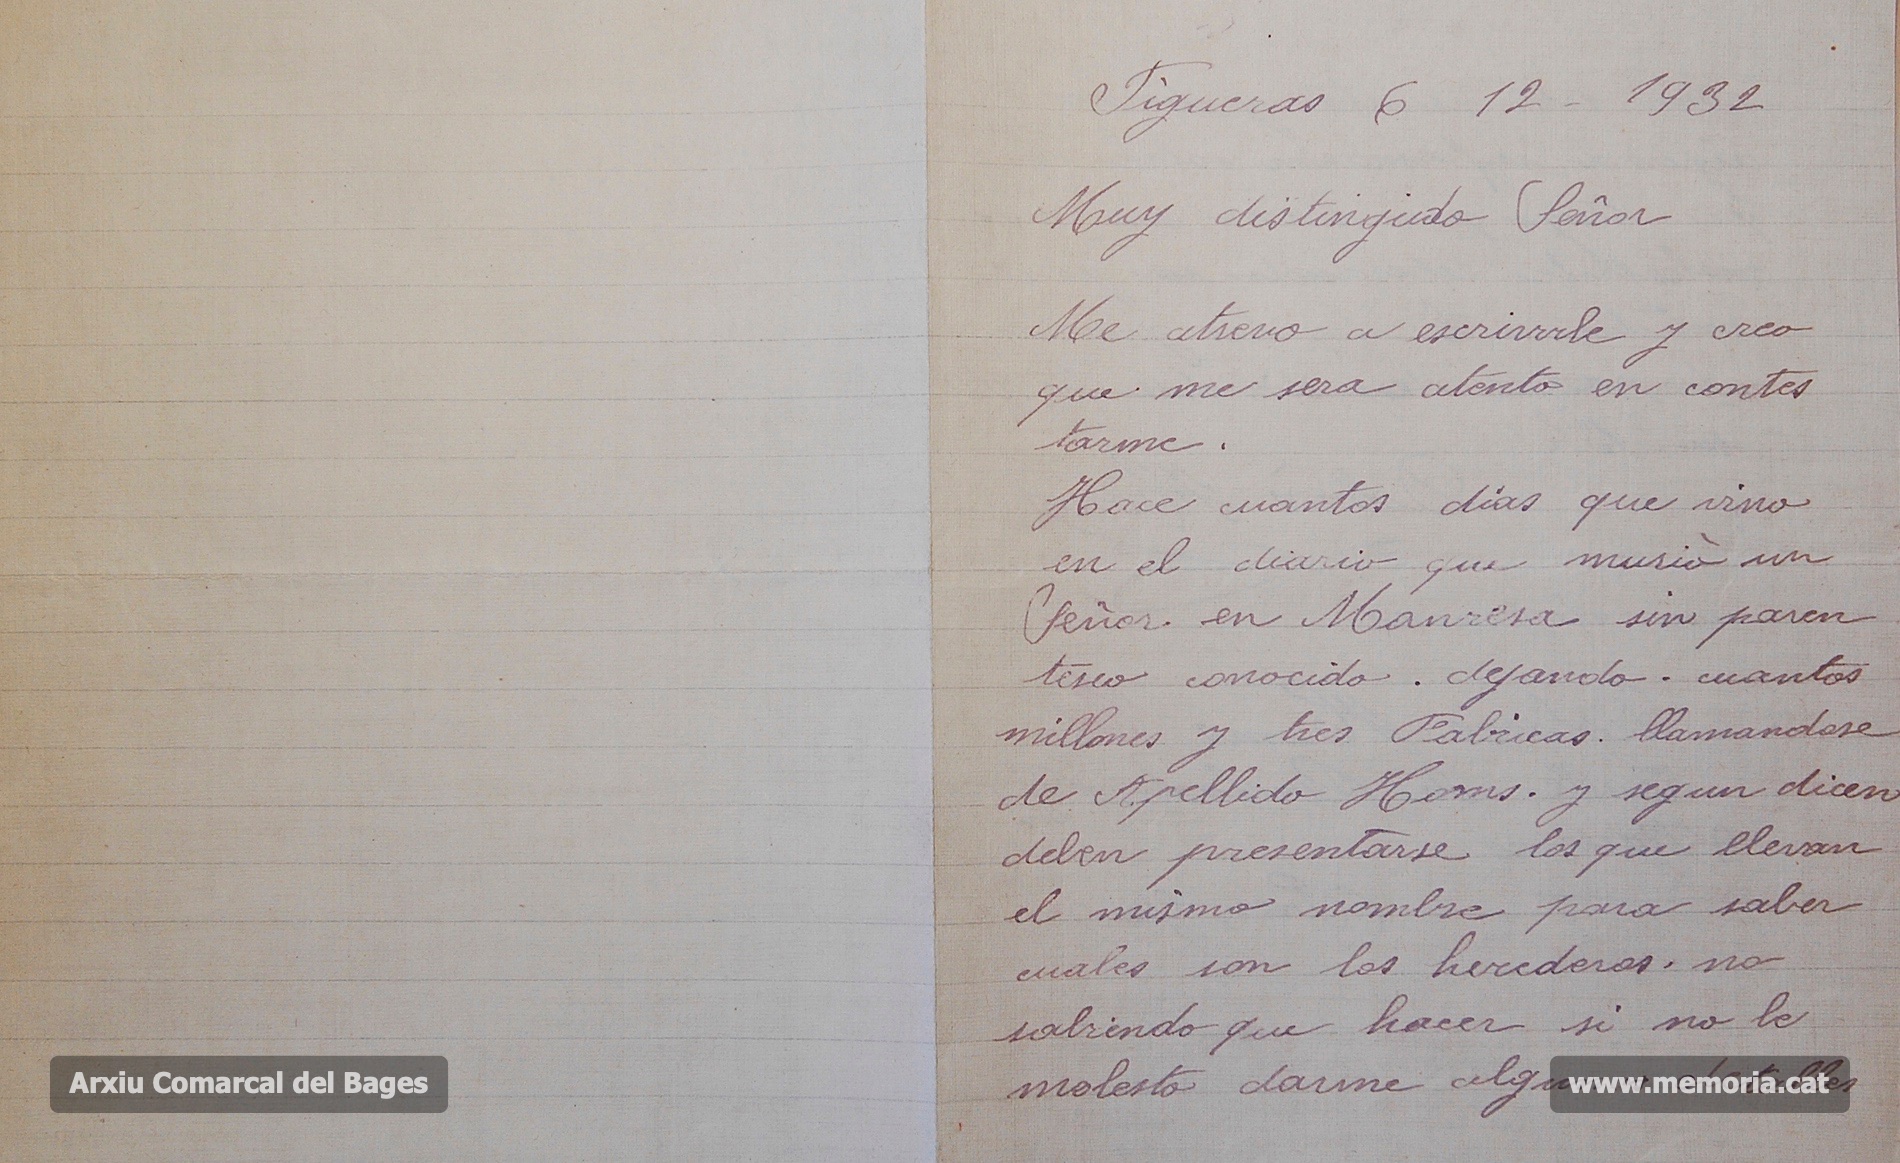 Figueras 6 12 - 1932
Muy distinguido Señor
Me atrevo a escrivirle y creo
que me sera atento en contes
tarme.
Hace cuantos dias que vino
en el diario que muriò un
Señor. en Manresa sin paren
tesco conocido. dejando. cuantos
millones y tres Fabricas. llamandose
de Apellido Homs. y segun dicen
deben presentarse los que llevan
el mismo nombre para saber
cuales son los herederos. no
sabiendo que hacer si no le
molesto darme
Arxiu Comarcal del Bages
www.memoria.cat